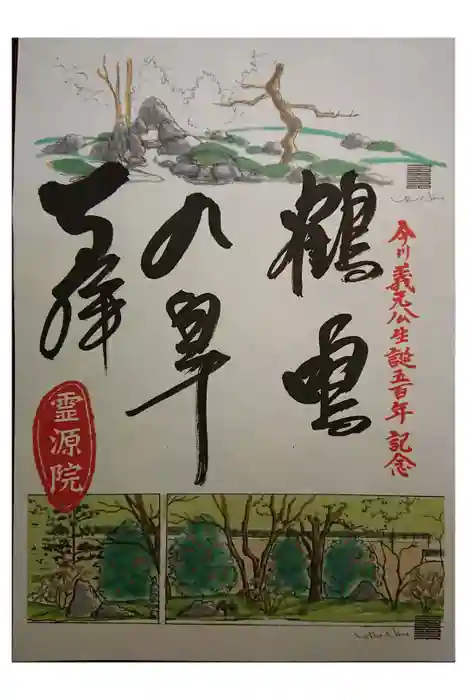 今川義元公生誕五百年記念
鶴鳴
九皐
奉拝
霊源院